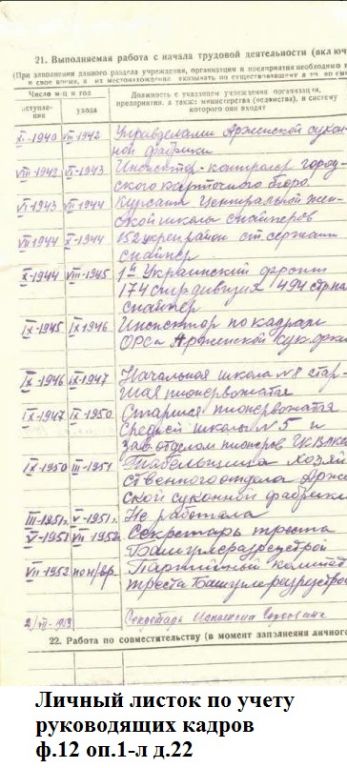 21. Выполняемая работа с начала трудовой деятельности (включ
(При заполнении данного раздела учреждения, организации и предприятия необходимо
Число м-ц и год
Должность с указанием учреждения, организации, предприятия, а также министерства (ведомства), в систему которого они входят
вступле-ния
ухода
X-1940 VII-1942 Управделами Арженской сукон-
ной фабрики
VIII-1942 V-1943 Инспектор-контролер город-
ского карточного бюро.
VI-1943 VII-1944 Курсант Центральной жен-
ской школы снайперов
VII-1944 X-1944 152 укрепрайон ст. сержант
снайпер
X-1944 VIII-1945 1й Украинский фронт
174 стр. дивизия 494 стр. полк
снайпер
IX-1945 IX-1946 Инспектор по кадрам
ОРСа Арженской сук. фабр
IX-1946 IX-1947 Начальная школа №8 стар-
шая пионервожатая
IX-1947 IX-1950 Старшая пионервожатая
Средней школы №5 и
зав. отделом пионеров ГК ВЛКСМ
IX-1950 III-1951 Табельщица хозяй
ственного отдела Арже
ской суконной фабрики
III-1951г. V-1951г. Не работала
V-1951 VII-1952г. Секретарь треста
VII-1952 по н/вр. Партийный комитет
треста
Секретарь
22. Работа по совместительству (в момент заполнения личного
Личный листок по учету
руководящих кадров
ф.12 оп.1-л д.22